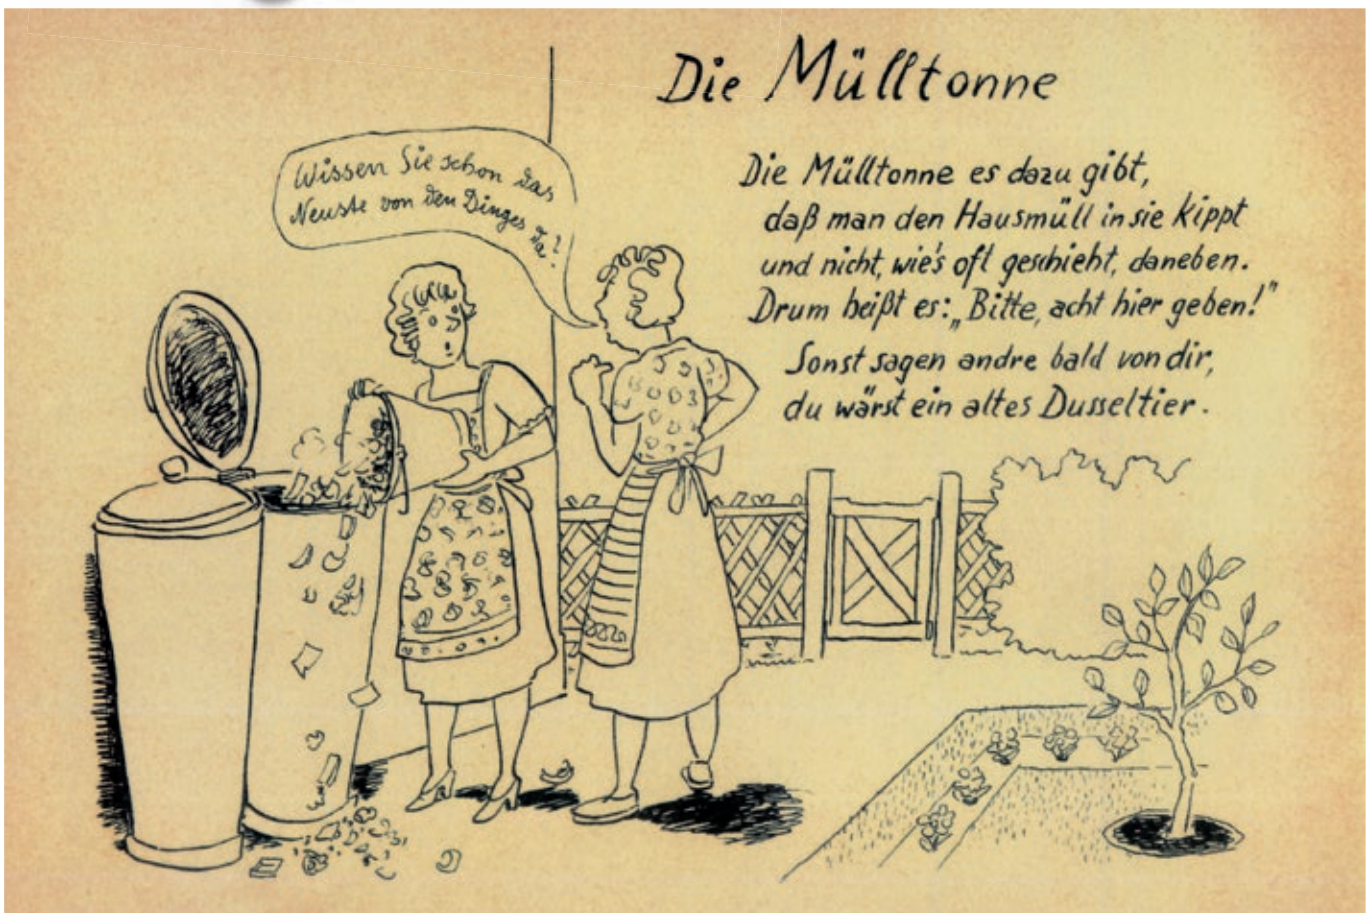 Die Mülltonne
Wissen Sie schon das
Neuste von den Dinges da?!
Die Mülltonne es dazu gibt,
daß man den Hausmüll in sie kippt
und nicht, wie's oft geschieht, daneben.
Drum heißt es: „Bitte, acht hier geben!"
Sonst sagen andre bald von dir,
du wärst ein altes Dusseltier.